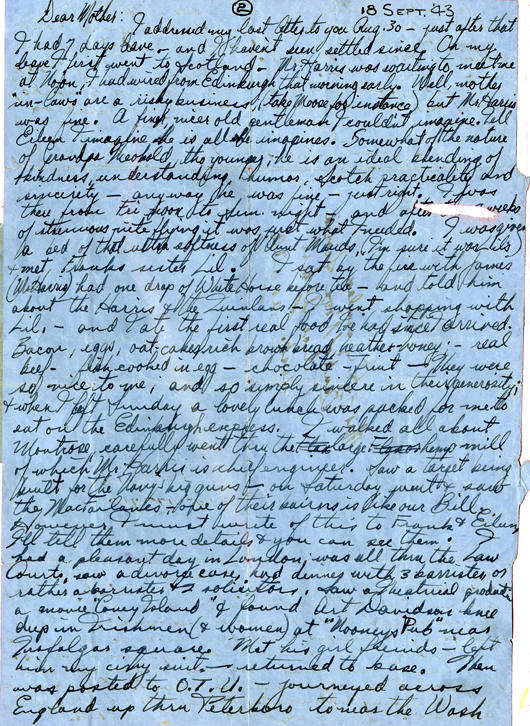 ② 18 SEPT. '43
Dear Mother: I addressed my last letter to you Aug. 30 - just after that
I had 7 days leave - and I haven't been settled since. On my
leave I first went to Scotland - Mr Harris was waiting to meet me
at Noon, I had wired from Edinburgh that morning early. Well, mother
in-laws are a risky business (take Moore for instance) but Mr Harris
was fine. A finer, nicer old gentleman I couldn't imagine. Tell
Eileen I imagine he is all she imagines. Somewhat of the nature
of grandpa the younger; he is an ideal blending of
kindness, understanding, humor, Scotch practicality and
sincerity - anyway he was fine - just right. I was
there from fri noon to sun. night - and after weeks
of strenuous nite flying it was just what I needed. I was given
a bed of that ultra softness of Aunt Mauds, (I'm sure it was Lil's)
& met, Franks sister Lil. I sat by the fire with James
(Mr Harris) had one drop of White Horse before tea - and told him
about the Harris & the Quinlans - I went shopping with
Lil, - and I ate the first real food I've had since I arrived.
Bacon, eggs, oat-cakes, rich brown bread, heather-honey, - real
beef - fish cooked in egg - chocolate - fruit - They were
so nice to me, and so simply sincere in their generosity,
& when I left Sunday a lovely lunch was packed for me to
eat on the Edinburgh express. I walked all about
Montrose, carefully went thru the large hemp mill
of which Mr. Harris is chief engineer. Saw a target being
built for the Navy big guns - on Saturday went & saw
the MacFarlanes - one of their bairns is like our Bill.
However, I must write of this to Frank & Eileen,
I'll tell them more details & you can see them. I
had a pleasant day in London; was all thru the Law
Courts, saw a divorce case, had dinner with 3 barristers or
rather a barrister & 2 solicitors. Saw a theatrical production
a movie "Coney Island" & I found Art Davidson knee
deep in Irishmen (& women) at "Mooneys Pub" near
Trafalgar square. Met his girl friends - left
him my civvy suit - returned to base. Then
was posted to O.T.U. - journeyed across
England up thru Peterboro to near the Wash